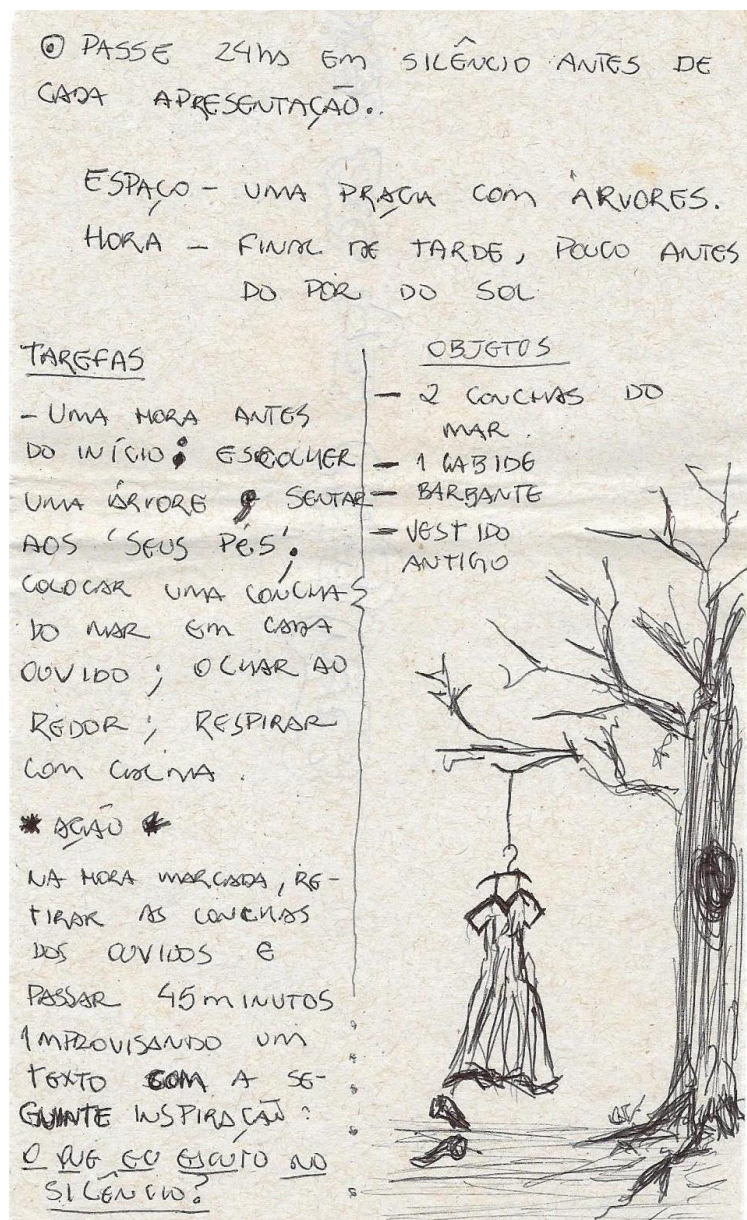 ⊙ PASSE 24hs EM SILÊNCIO ANTES DE
CADA APRESENTAÇÃO..
ESPAÇO - UMA PRAÇA COM ÁRVORES.
HORA - FINAL DE TARDE, POUCO ANTES
DO PÔR DO SOL
TAREFAS
- UMA HORA ANTES
DO INÍCIO: ESCOLHER
UMA ÁRVORE; SENTAR
AOS 'SEUS PÉS';
COLOCAR UMA CONCHA
DO MAR EM CADA
OUVIDO; OLHAR AO
REDOR; RESPIRAR
COM CALMA.
* AÇÃO *
NA HORA MARCADA, RE-
TIRAR AS CONCHAS
DOS OUVIDOS E
PASSAR 45 MINUTOS
IMPROVISANDO UM
TEXTO COM A SE-
GUINTE INSPIRAÇÃO:
O QUE EU ESCUTO NO
SILÊNCIO?
OBJETOS
- 2 CONCHAS DO
MAR.
- 1 CABIDE
- BARBANTE
- VESTIDO
ANTIGO